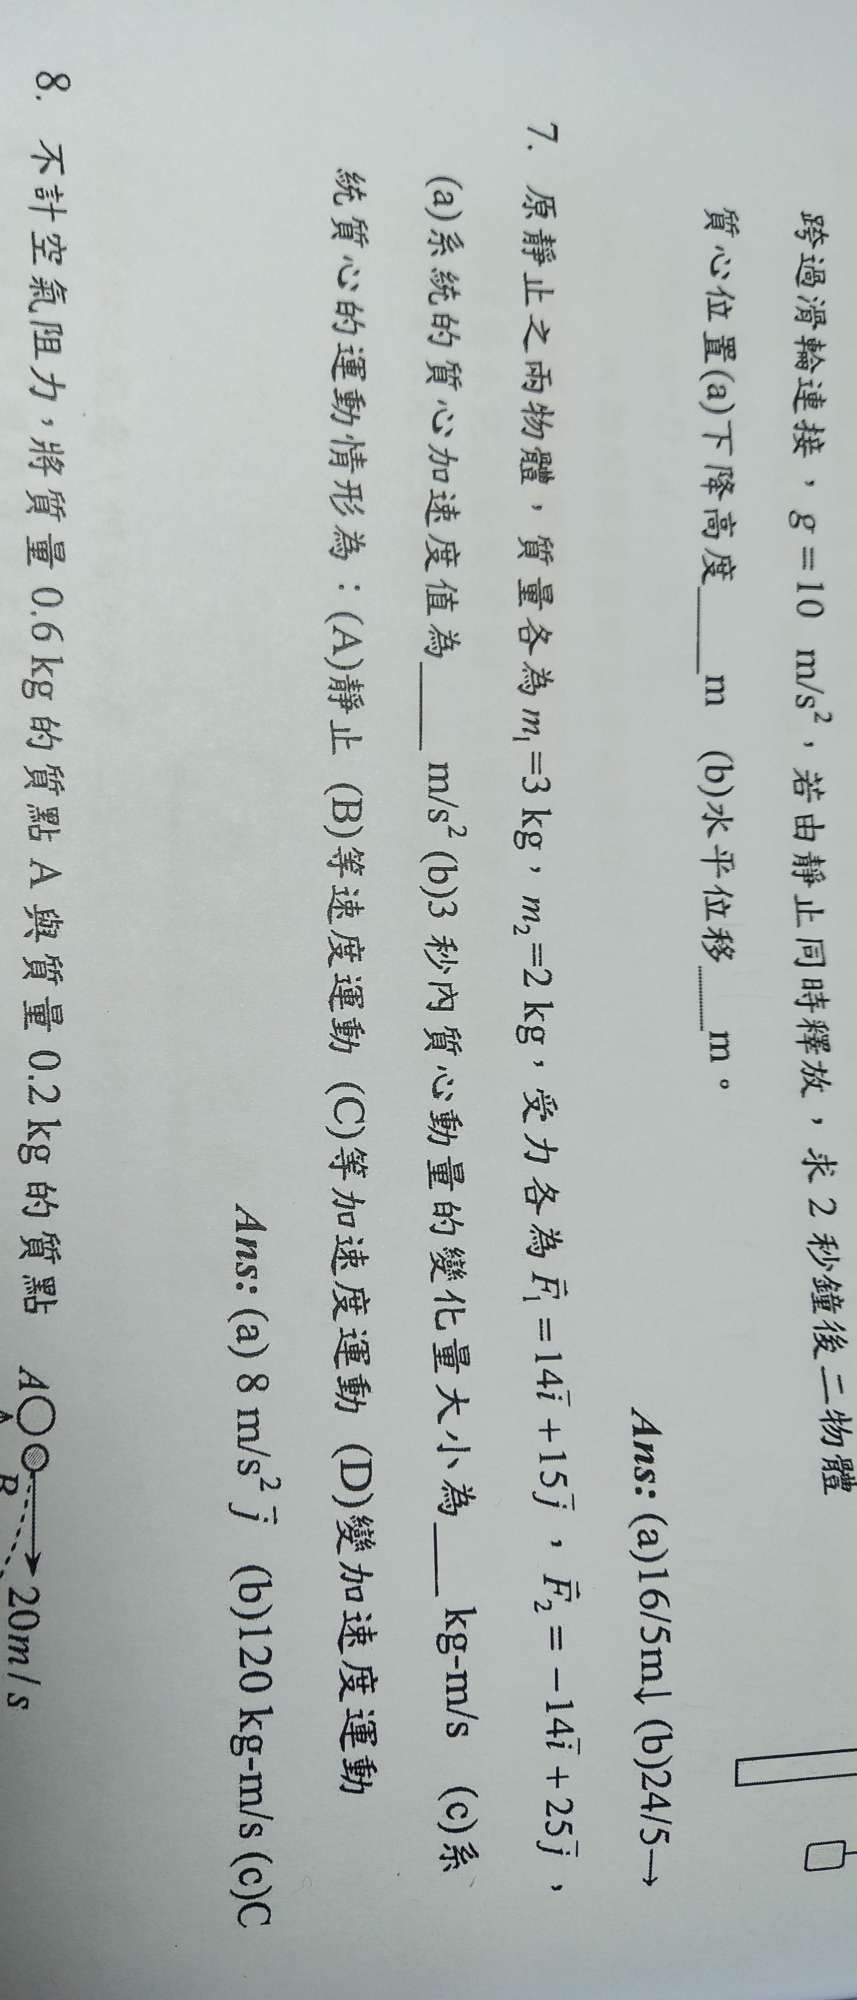 跨過滑輪連接，g=10 m/s²，若由靜止同時釋放，求2秒鐘後二物體
質心位置(a)下降高度____m (b)水平位移____m。
Ans: (a)16/5m↓ (b)24/5→
7. 原靜止之兩物體，質量各為m₁=3 kg，m₂=2 kg，受力各為F̄₁=14ī+15j̄，F̄₂=−14ī+25j̄，
(a)系統的質心加速度值為____ m/s² (b)3秒內質心動量的變化量大小為____ kg-m/s (c)系
統質心的運動情形為：(A)靜止 (B)等速度運動 (C)等加速度運動 (D)變加速度運動
Ans: (a) 8 m/s² j̄ (b)120 kg-m/s (c)C
8. 不計空氣阻力，將質量0.6 kg的質點A與質量0.2 kg的質點
A
B
20m/s